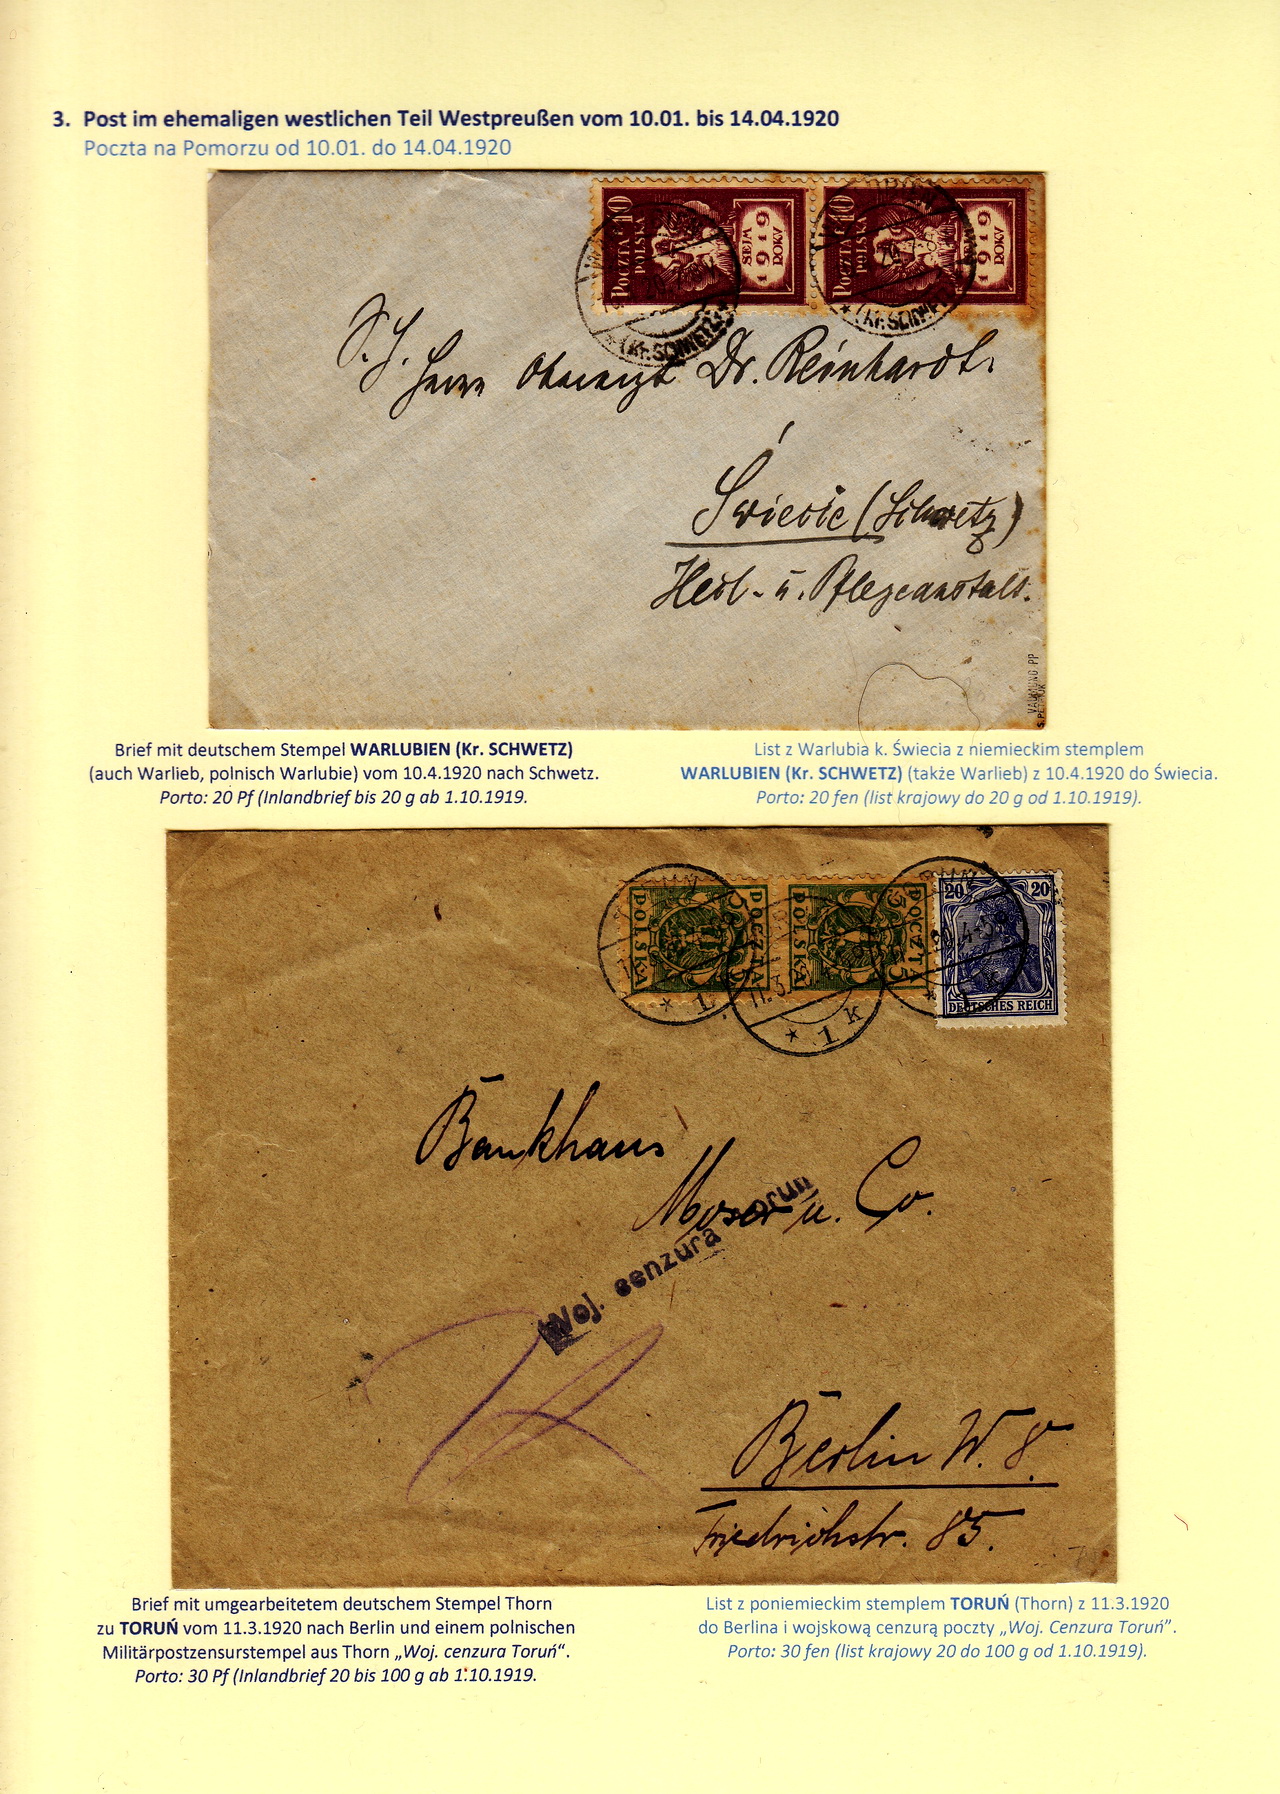 3. Post im ehemaligen westlichen Teil Westpreußen vom 10.01. bis 14.04.1920
Poczta na Pomorzu od 10.01. do 14.04.1920
POCZTA 10
POLSKA
SEJM
1919
ROKU
POCZTA 10
POLSKA
SEJM
1919
ROKU
(Kr. SCHWETZ)
(Kr. SCHWETZ)
S. H. Herrn Oberarzt Dr. Reinhardt.
Świecie (Schwetz)
Heil- u. Pflegeanstalt.
Brief mit deutschem Stempel WARLUBIEN (Kr. SCHWETZ)
(auch Warlieb, polnisch Warlubie) vom 10.4.1920 nach Schwetz.
Porto: 20 Pf (Inlandbrief bis 20 g ab 1.10.1919.
List z Warlubia k. Świecia z niemieckim stemplem
WARLUBIEN (Kr. SCHWETZ) (także Warlieb) z 10.4.1920 do Świecia.
Porto: 20 fen (list krajowy do 20 g od 1.10.1919).
POLSKA 5 POCZTA 5
POLSKA 5 POCZTA 5
20 20
DEUTSCHES REICH
* 1
11.3.
* 1 k
* k
Bankhaus
Moser u. Co.
Woj. cenzura Toruń
Berlin W. 8.
Friedrichstr. 85.
Brief mit umgearbeitetem deutschem Stempel Thorn
zu TORUŃ vom 11.3.1920 nach Berlin und einem polnischen
Militärpostzensurstempel aus Thorn „Woj. cenzura Toruń“.
Porto: 30 Pf (Inlandbrief 20 bis 100 g ab 1.10.1919.
List z poniemieckim stemplem TORUŃ (Thorn) z 11.3.1920
do Berlina i wojskową cenzurą poczty „Woj. Cenzura Toruń”.
Porto: 30 fen (list krajowy 20 do 100 g od 1.10.1919).